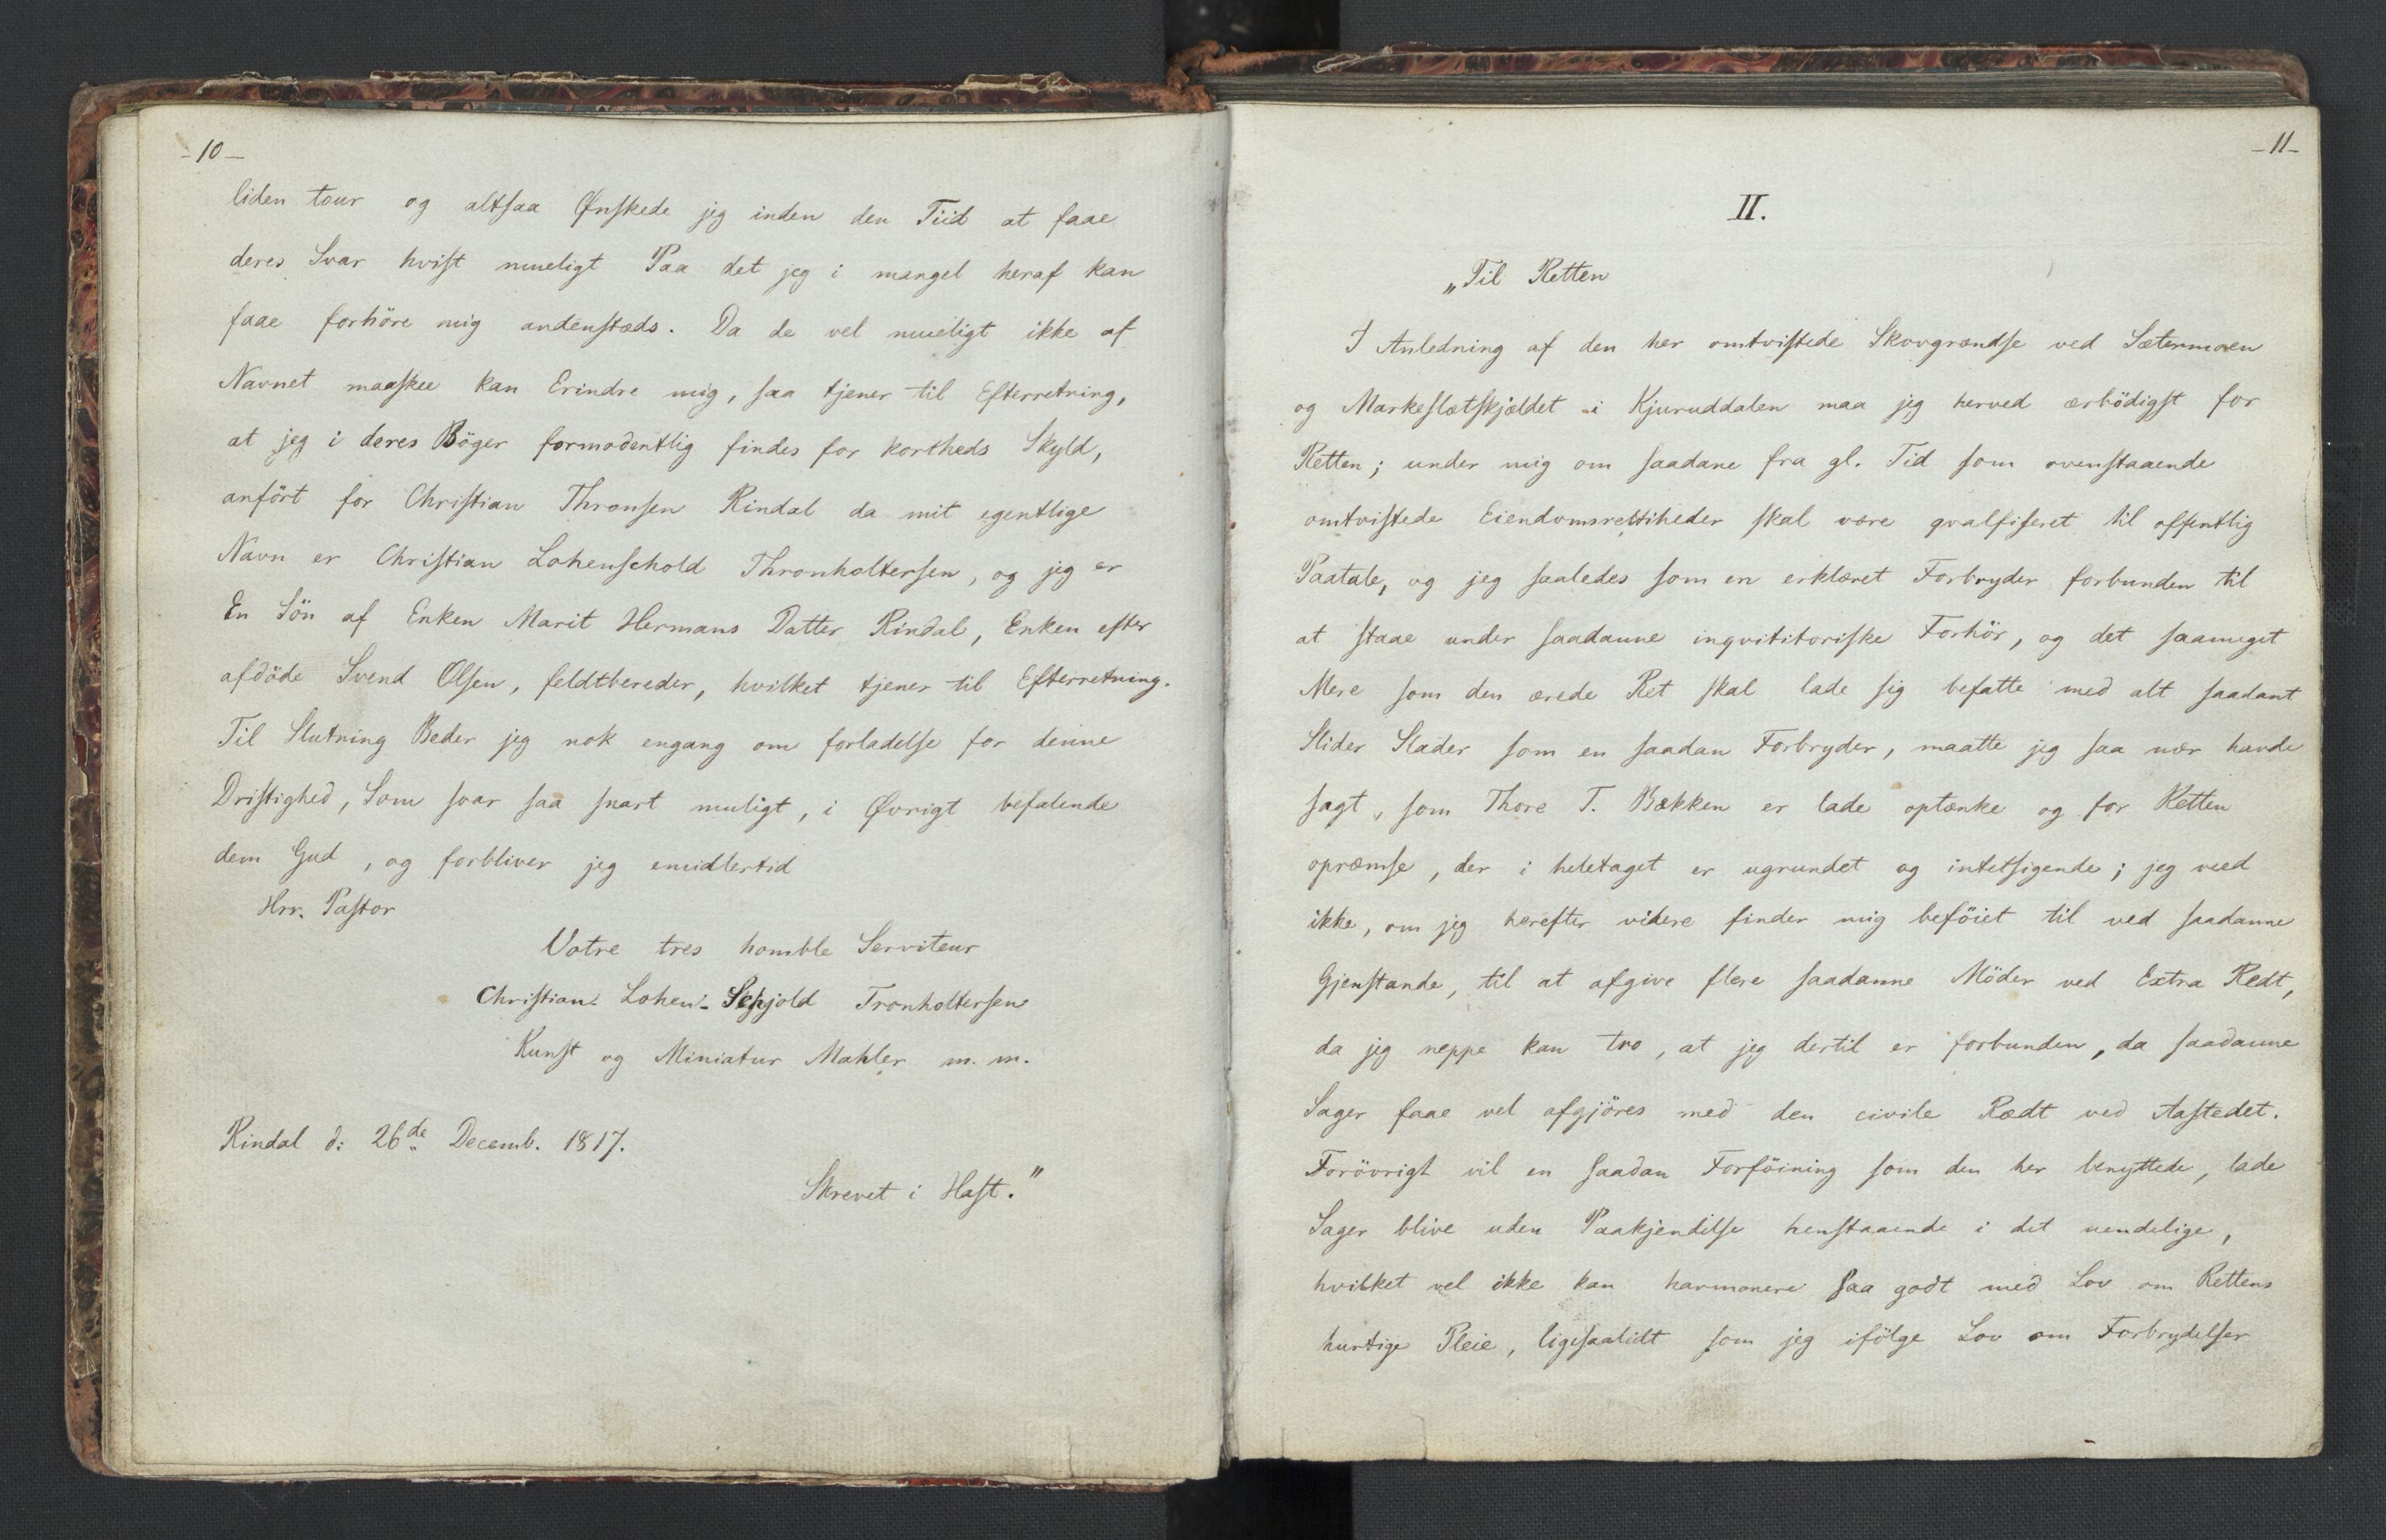 - 10 -
liden tour og altsaa Ønskede jeg inden den Tiid at faae
deres Svar hvist mueligt Paa det jeg i mangel heraf kan
faae forhöre mig andenstæds. Da de vel mueligt ikke af
Navnet maaskee kan Erindre mig, saa tjener til Efterretning,
at jeg i deres Böger formodentlig findes for kortheds Skyld,
anfört for Christian Thronsen Rindal da mit egentlige
Navn er Christian Lohenschold Thronholtersen, og jeg er
En Sön af Enken Marit Hermans Datter Rindal, Enken efter
afdöde Svend Olsen, feldtbereder, hvilket tjener til Efterretning.
Til Slutning Beder jeg nok engang om forladelse for denne
Dristighed, Som svar saa snart muligt, i Øvrigt befalende
dem Gud, og forbliver jeg emidlertid
Hrr. Pastor
Votre tres homble Serviteur
Christian Lohen-Schjold Tronholtersen
Kunst og Miniatur Mahler m. m.
Rindal d: 26de Decemb. 1817.
Skrevet i Hast."
- 11 -
II.
„Til Retten
I Anledning af den her omtvistede Skovgrændse ved Sætermoen
og Markeslætskjældet i Kjuruddalen maa jeg herved ærbödigst for
Retten; under mig om saadane fra gl. Tid som ovenstaaende
omtvistede Eiendomsrettiheder skal være qvalfiseret til offentlig
Paatale, og jeg saaledes som en erklæret Forbryder forbunden til
at staae under saadanne inqvititoriske Forhör, og det saameget
Mere som den ærede Ret skal lade sig befatte med alt saadant
Slider Slader som en saadan Forbryder, maatte jeg saa nær havde
sagt, som Thore T. Bækken er lade optænke og for Retten
opræmse, der i heletaget er ugrundet og intetsigende; jeg veed
ikke, om jeg herefter videre finder mig beföiet til ved saadanne
Gjenstande, til at afgive flere saadanne Möder ved Extra Redt,
da jeg neppe kan tro, at jeg dertil er forbunden, da saadanne
Sager faae vel afgjöres med den civile Rædt ved Aastedet.
Forövrigt vil en saadan Forföining som den her benyttede, lade
Sager blive uden Paakjendilse henstaaende i det uendelige,
hvilket vel ikke kan harmonere saa godt med Lov om Rettens
hurtige Pleie, ligesaalidt som jeg ifölge Lov om Forbrydelser